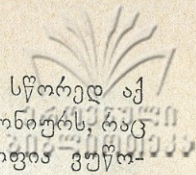 სწორედ აქ
ონიურს, რაც
ოფია ვუწო-